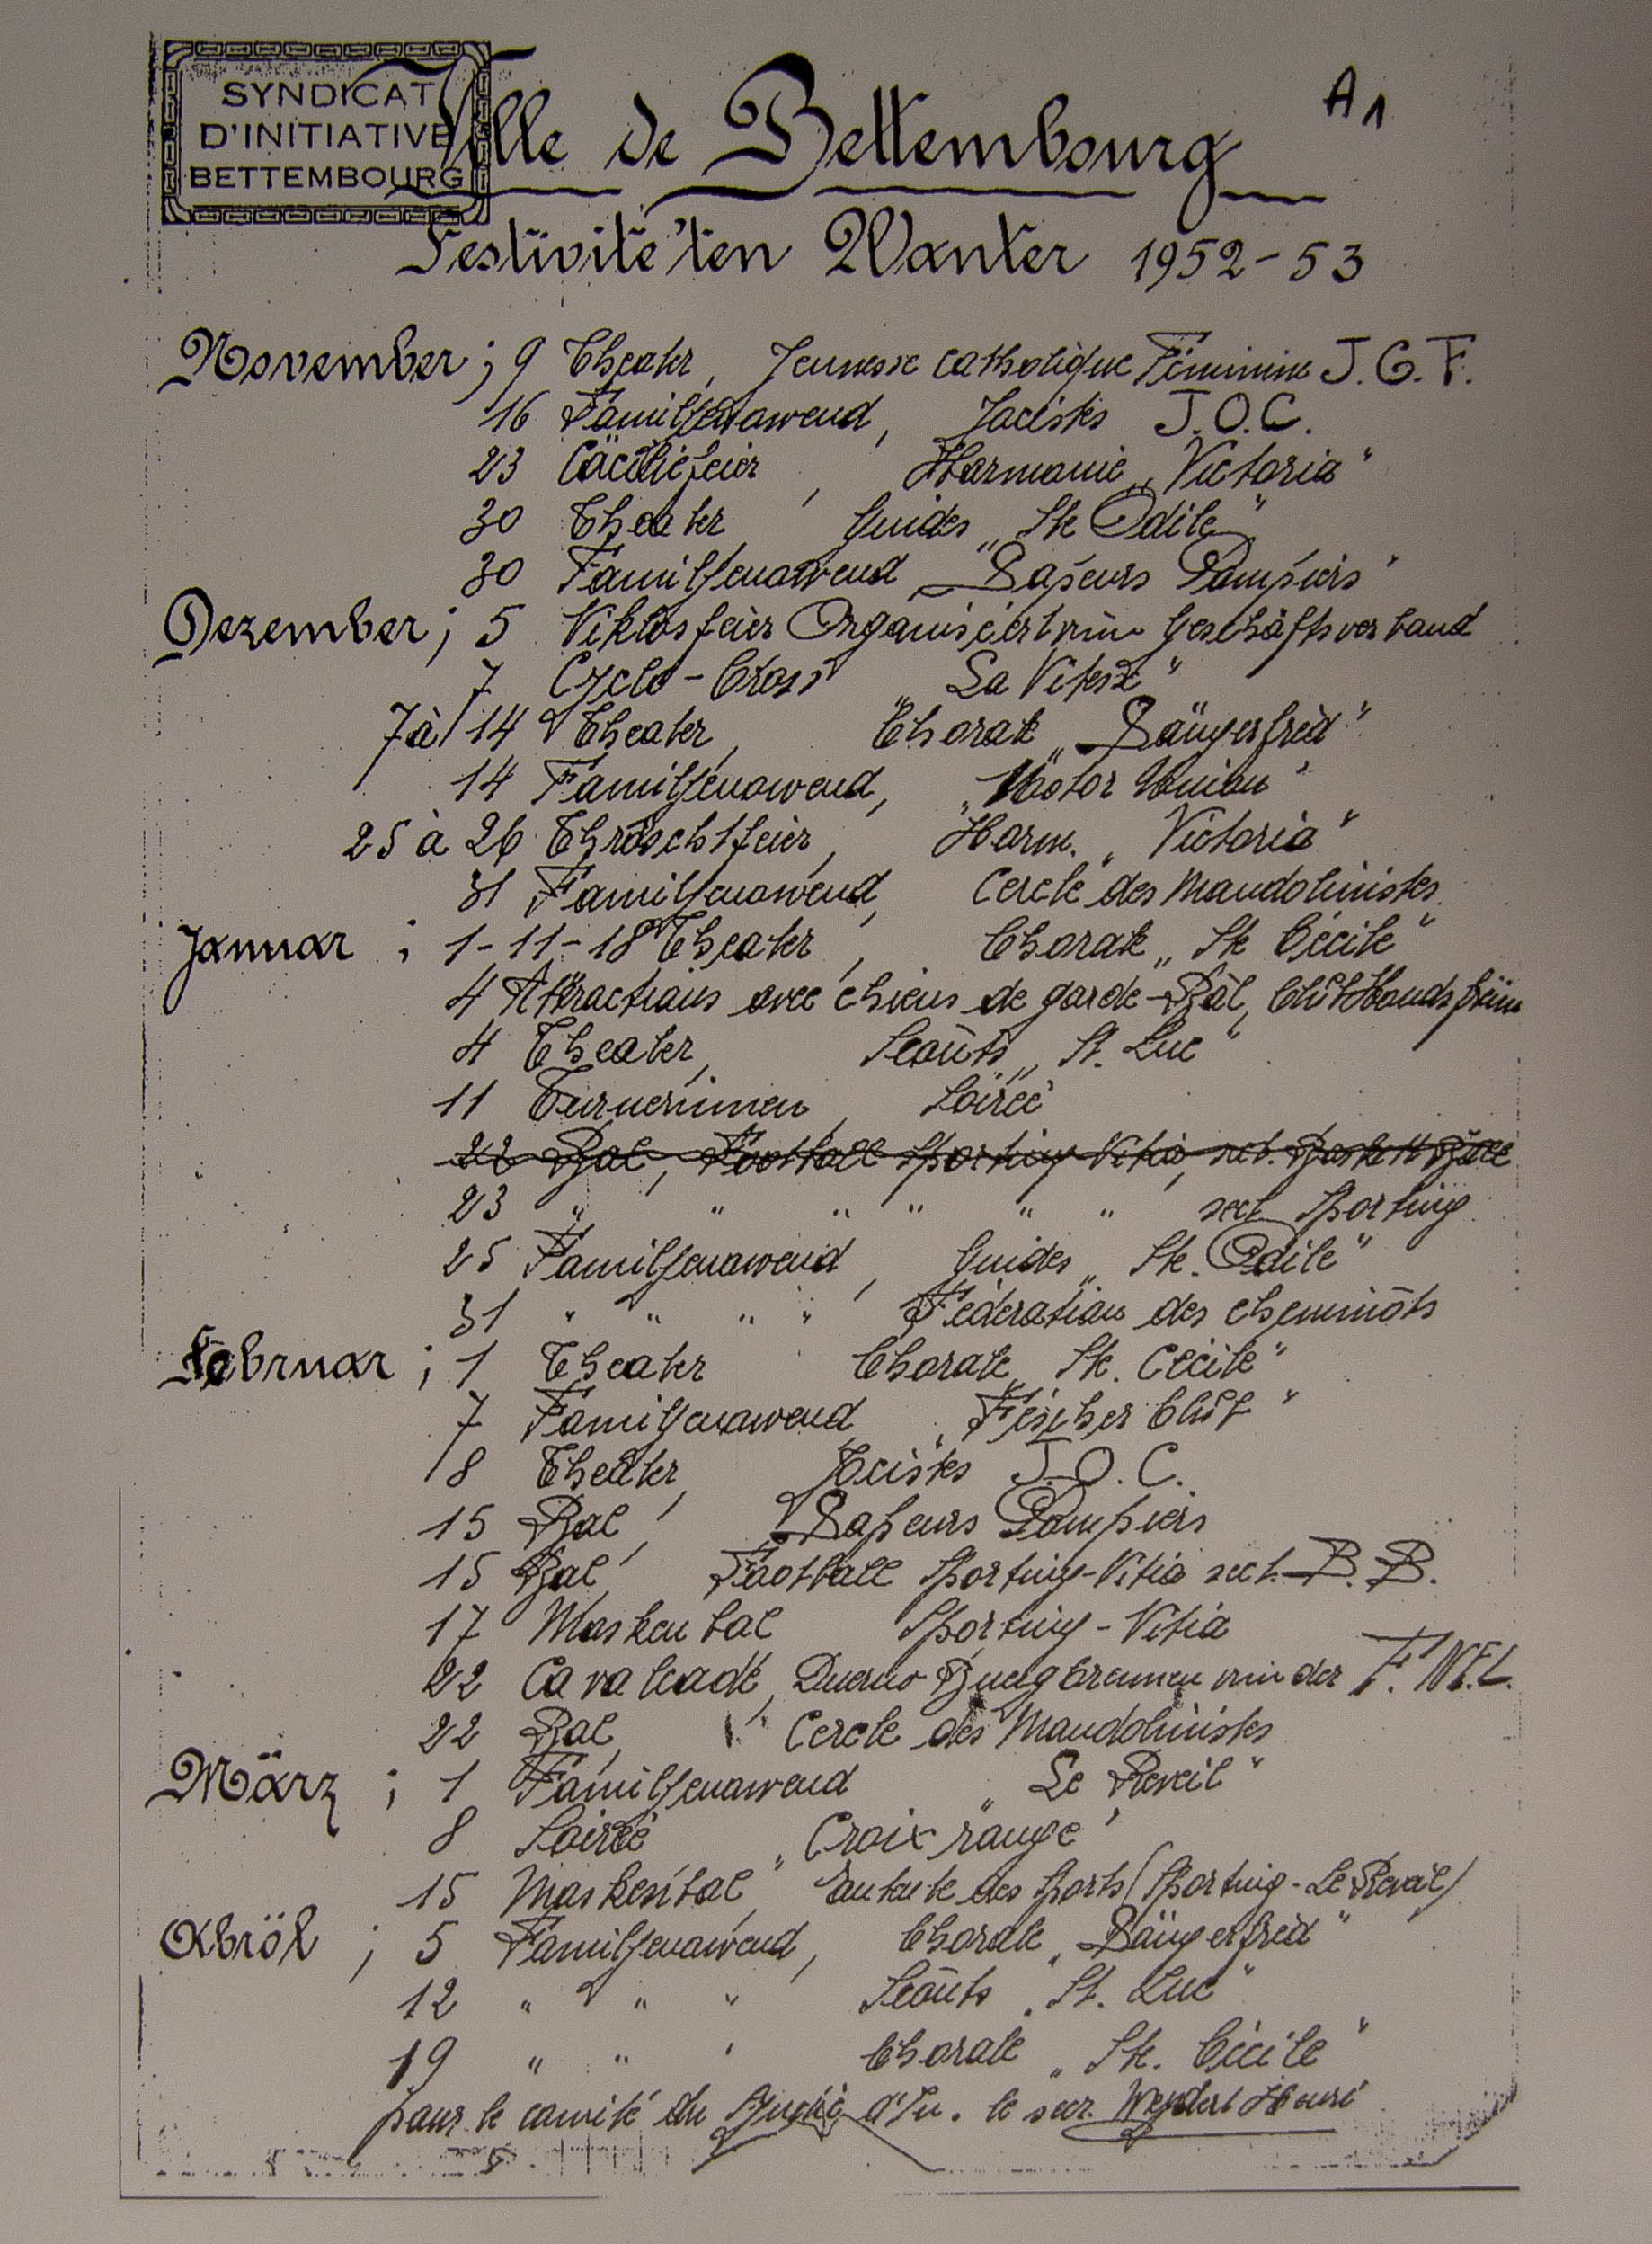 SYNDICAT
D'INITIATIVE
BETTEMBOURG
A1
Ville de Bettembourg
Festivite'ten Wanter 1952-53
November ; 9 Theater, Jeunesse catholique Féminine J.C.F.
16 Familjenawend, Jocistes J.O.C.
23 Cäciliefeier, Harmonie „Victoria"
30 Theater, Guides „Ste Odile"
30 Familjenawend „Sapeurs Pompiers"
Dezember ; 5 Niklosfeier Organiséiert vum Geschäftsverband
7 Cyclo-Cross „La Vitesse"
7 à 14 Theater, Chorale „Sängerfréd"
14 Familjenawend, „Motor Union"
25 à 26 Chröschtfeier, Harm. „Victoria"
31 Familjenawend, Cercle des Mandolinistes
Januar ; 1-11-18 Theater, Chorale „Ste Cécile"
4 Attractions avec chiens de garde - Bal, Club Hondsfrënn
4 Theater, Scouts „St. Luc"
11 Turnerinnen, Soirée
22 Bal, Football Sporting Vitia, sect. Baskett Ball
23 " " " " " " sect Sporting
25 Familjenawend, Guides „Ste. Odile"
31 " " " " Féderation des cheminots
Februar ; 1 Theater Chorale „Ste. Cécile"
7 Familjenawend „Fëscher Club"
8 Theater, Jocistes J.O.C.
15 Bal, Sapeurs Pompiers
15 Bal, Football Sporting-Vitia sect. B.B.
17 Maskenbal Sporting-Vitia
22 Cavalcade, Duerno Buergbrennen vun der F.N.E.L.
22 Bal, Cercle des Mandolinistes
März ; 1 Familjenawend „Le Reveil"
8 Soirée „Croix rouge"
15 Maskenbal, Entente des Sports (Sporting - Le Reveil)
Abröl ; 5 Familjenawend, Chorale „Sängerfréd"
12 " " " Scouts „St. Luc"
19 " " " Chorale „Ste. Cécile"
pour le comité du d'In. le secr. Weydert Henri